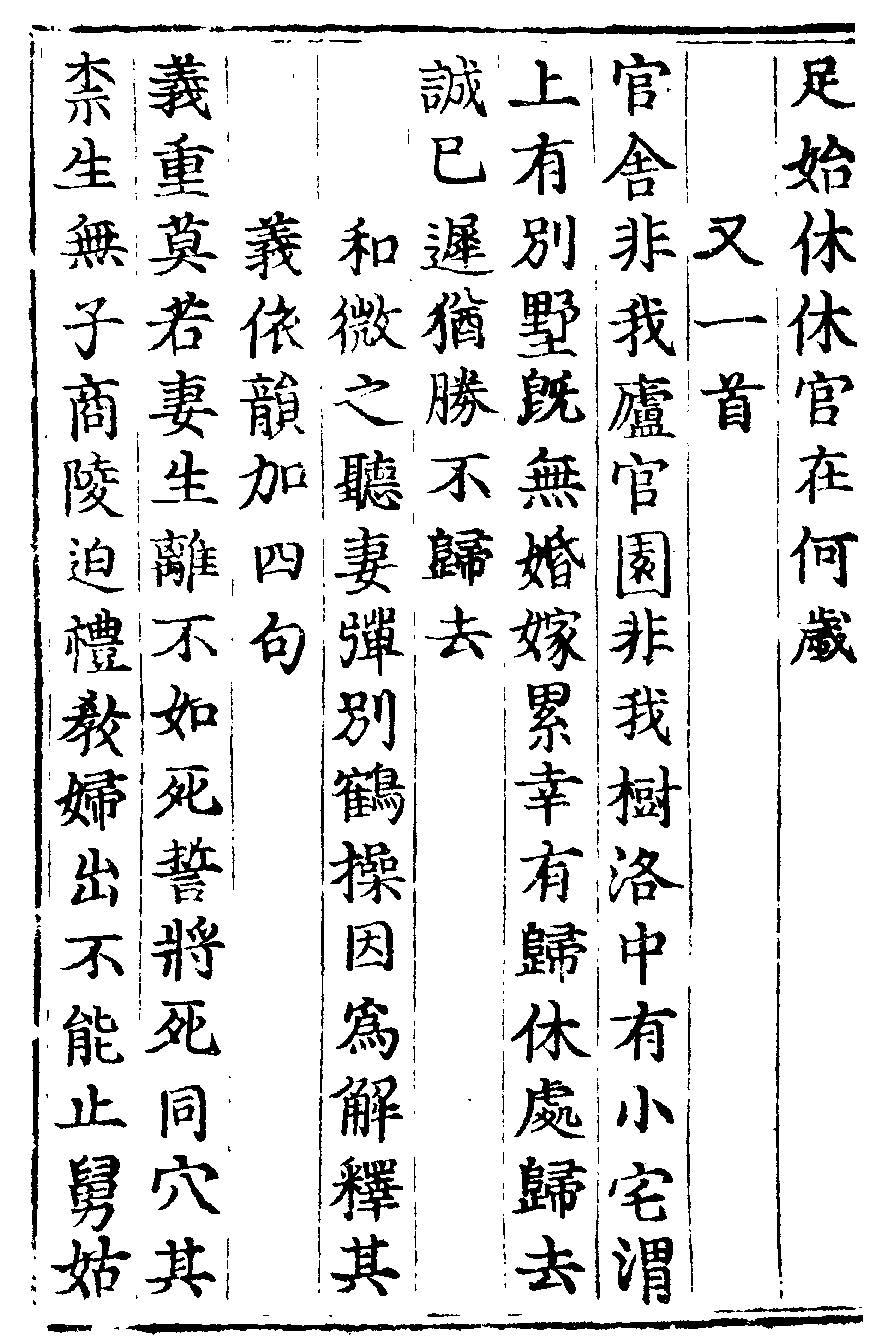 足始休休官在何歲
又一首
官舍非我廬官園非我樹洛中有小宅渭
上有別墅既無婚嫁累幸有歸休處歸去
誠已遲猶勝不歸去
和微之聽妻彈別鶴操因爲解釋其
義依韻加四句
義重莫若妻生離不如死誓將死同穴其
柰生無子商陵迫禮教婦出不能止舅姑